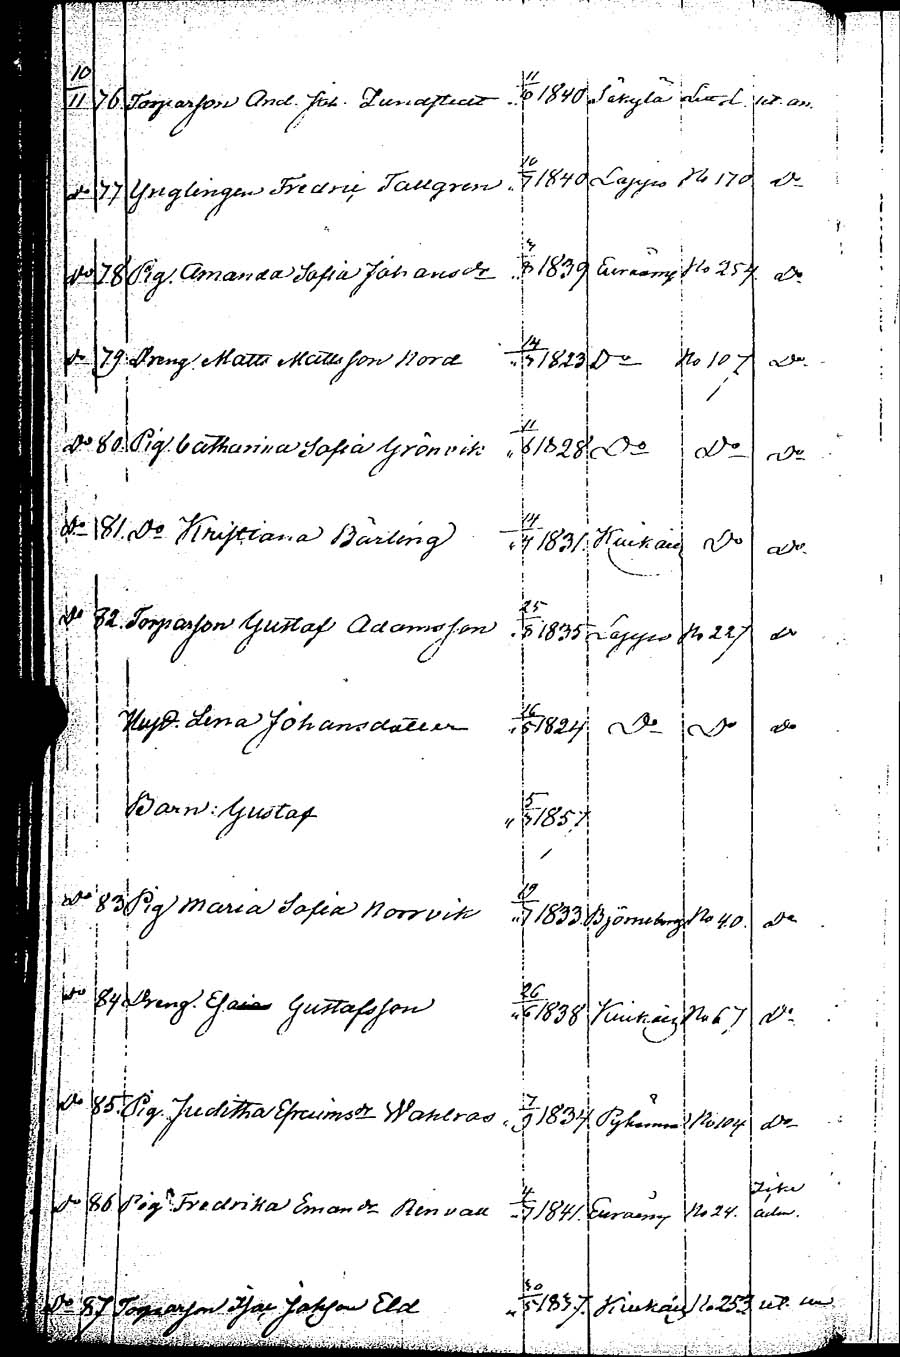 10/11 76. Torparson And. Joh. Lundstedt 11/6 1840 Säkylä
Do 77 Ynglingen Fredric Tallgren 10/7 1840 Lappo No 170 Do
Do 78 Pig. Amanda Sofia Johansdr 1839 Euraåmy No 254 Do
Do 79. Dreng Matts Mattsson Nord 14/7 1823 Do No 107 Do
Do 80. Pig. Catharina Sofia Grönvik 11/6 1828 Do Do Do
Do 81. Do Kristiana Bärling 14/4 1831. Kiukais Do Do
Do 82. Torparson Gustaf Adamsson 25/8 1835 Lappo No 227 Do
Hust. Lena Johansdotter 16/5 1824 Do Do Do
Barn: Gustaf 5/7 1857
Do 83 Pig Maria Sofia Norrvik 19/7 1833 Björneborg No 40. Do
Do 84 Dreng. Esaias Gustafsson 26/6 1838 Kiukais No 67 Do
Do 85. Pig. Juditha Efraimsdr Wahlroos 7/9 1834 No 104 Do
Do 86 Pig Fredrika Emandr Renvall 4/7 1841. Euraåmy No 24.
Do 87 Torparson Isac Jakson Eld 30/5 1837. Kiukais No 253